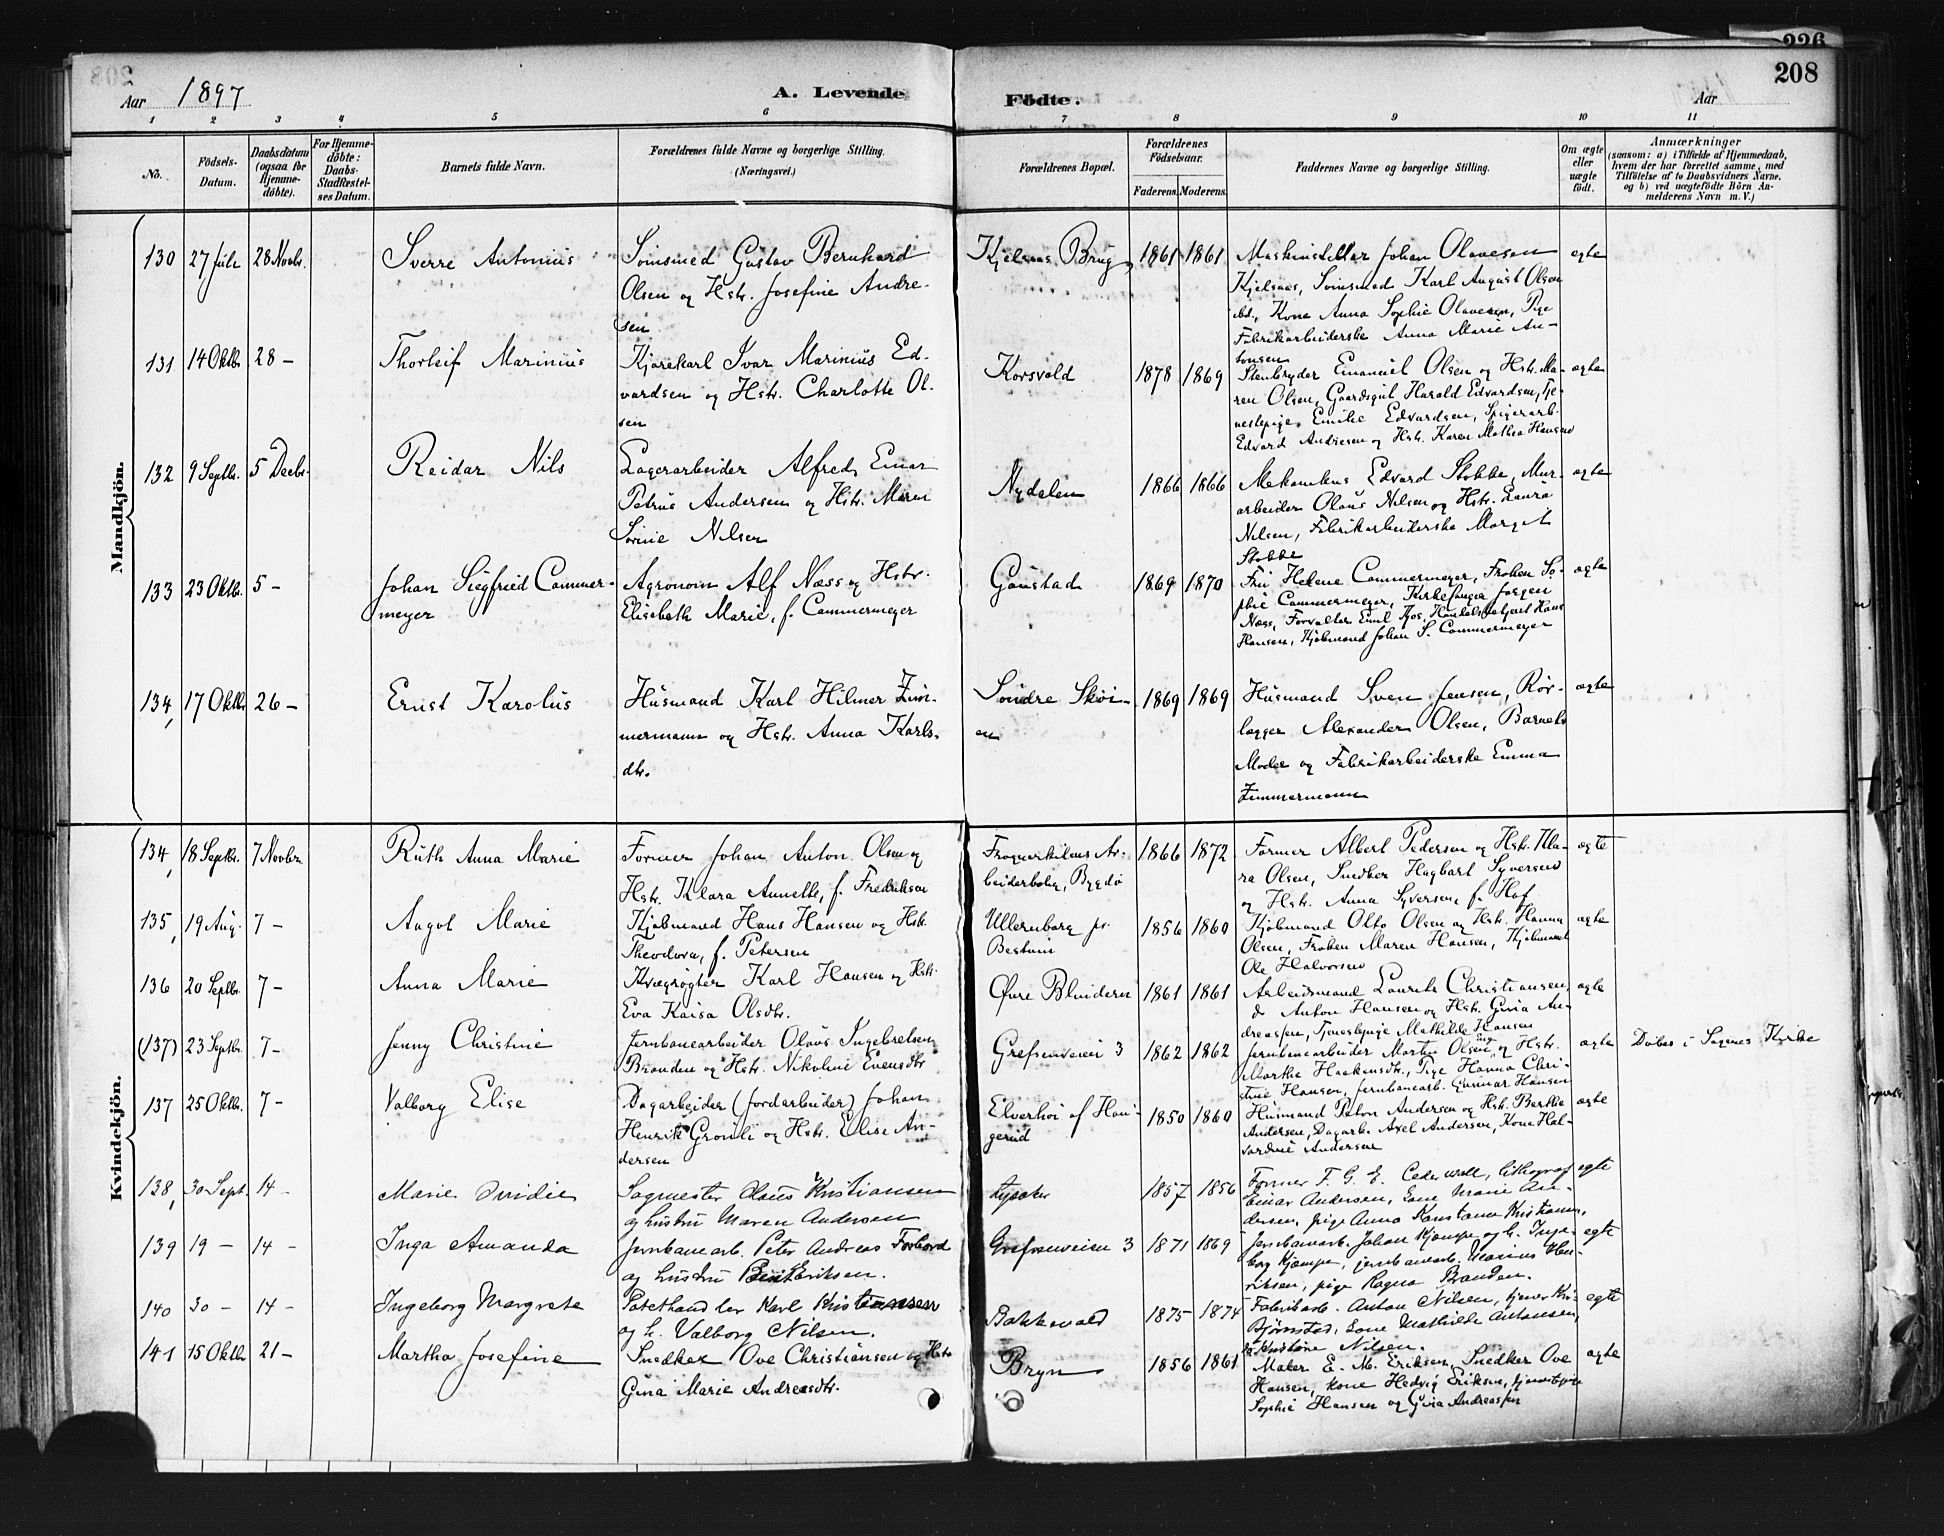 226
208
Aar 1897
A. Levende Födte.
Aar
1 2 3 4 5 6 7 8 9 10 11
No.
Födsels-Datum.
Daabsdatum (ogsaa for Hjemme-döbte).
For Hjemme-döbte: Daabs-Stadfæstel-ses Datum.
Barnets fulde Navn.
Forældrenes fulde Navne og borgerlige Stilling. (Næringsvei.)
Forældrenes Bopæl.
Forældrenes Födselsaar.
Faderens. Moderens.
Faddernes Navne og borgerlige Stilling.
Om ægte eller uægte födt.
Anmærkninger
(saasom: a) i Tilfælde af Hjemmedaab,
hvem der har forrettet samme, med
Tilföielse af to Daabsvidners Navne.
og b) ved uægtefödte Börn An-
melderens Navn m. V.)
Mandkjön.
130 27 Juli 28 Novbr. Sverre Antonius
Gustav Bernhard
Olsen og Hstr. Josefine Andre-
sen
Kjelsaas Brug 1861 1861
Johan Olavesen
Kjelsaas, Karl August Olsen
ibd., Kone Anna Sophie Olavesen, Pige
Fabrikarbeiderske Anna Marie An-
tonsen
ægte
131 14 Oktbr. 28 — Thorleif Marinius
Kjørekarl Ivar Marinius Ed-
vardsen og Hstr. Charlotte Ol-
sen
Korsvold 1878 1869
Stenbryder Emanuel Olsen og Hstr. Ma-
ren Olsen, Gaardsgut Harald Edvardsen, Tje-
nestepige Emilie Edvardsen, Spigerarb.
Edvard Andresen og Hstr. Karen Mathea Hansen
ægte
132 9 Septbr. 5 Decbr. Reidar Nils
Lagerarbeider Alfred Einar
Petrus Andersen og Hstr. Maren
Sørine Nilsen
Nydalen 1866 1866
Mekanikus Edvard Stokke, Mur-
arbeider Olaus Nilsen og Hstr. Laura
Nilsen, Fabrikarbeiderske Margit
Stokke
ægte
133 23 Oktbr. 5 — Johan Siegfried Cammer-
meyer
Agronom Alf Næss og Hstr.
Elisabeth Marie, f. Cammermeyer
Gaustad 1869 1870
Fru Helene Cammermeyer, Frøken So-
phie Cammermeyer, Kirkesanger Jørgen
Næss, Forvalter Emil Hans
Hansen, Kjøbmand Johan S. Cammermeyer
ægte
134 17 Oktbr. 26 — Ernst Karolus
Husmand Karl Hilmer Zim-
mermann og Hstr. Anna Karls-
dtr.
Søndre Skøi-
en
1869 1869
Husmand Sven Jensen, Rør-
lægger Alexander Olsen, Barnets
Moder og Fabrikarbeiderske Emma
Zimmermann
ægte
Kvindekjön.
134 18 Septbr. 7 Novbr. Ruth Anna Marie
Former Johan Anton Olsen og
Hstr. Klara Annette, f. Fredriksen
Frognerkilens Ar-
beiderbolig, Bygdø
1866 1872
Former Albert Pedersen og Hstr. Kla-
ra Olsen, Snedker Hagbart Syversen
og Hstr. Anna Syversen f. Hof
ægte
135 19 Aug. 7 — Aagot Marie
Kjøbmand Hans Hansen og Hstr.
Theodora, f. Petersen
Ullernborg pr.
Bestum
1856 1860
Kjøbmand Otto Olsen og Hstr. Hanna
Olsen, Frøken Maren Hansen, Kjøbmand
Ole Halvorsen
ægte
136 20 Septbr. 7 — Anna Marie
Kvægrøgter Karl Hansen og Hstr.
Eva Kaisa Olsdtr.
Øvre Blindern 1861 1861
Arbeidsmand Laurits Christiansen,
d. Anton Hansen og Hstr. Gina An-
dreassen, Tjenestepige Mathilde Hansen
ægte
(137) 23 Septbr. 7 — Jenny Christine
Jernbanearbeider Olaus Ingebretsen
Branden og Hstr. Nikoline Evensdtr
Grefsenveien 3 1862 1862
Jernbanearbeider Morten Olsen og Hstr.
Marthe Haakensdtr., Pige Hanna Chri-
stine Hansen, Jernbanearb. Gunnar Hansen
ægte
Døbes i Sagenes Kirke
137 25 Oktbr. 7 — Valborg Elise
Dagarbeider (Jordarbeider) Johan
Henrik Gromli og Hstr. Elise An-
dersen
Elverhøi af Hau-
gerud
1850 1860
Husmand Peter Andersen og Hstr. Berthe
Andersen, Dagarb. Axel Andersen, Kone Hal-
vardine Andersen
ægte
138 30 Sept. 14 — Marie Ovidie
Sagmester Olaus Kristiansen
og hustru Maren Andersen
Lysaker 1857 1856
Former F. G. E. Cederwall, lithograf
Einar Andersen, kone Marie An-
dersen, pige Anna Konstance Kristiansen.
egte
139 19 — 14 — Inga Amanda
Jernbanearb. Peter Andreas Forbord
og hustru Berit Eriksen.
Grefsenveien 3 1871 1869
Jernbanearb. Johan Kjæmpe og h. Inge-
borg Kjæmpe, jernbanearb. Marius Hen-
riksen, pige Ragna Branden.
egte
140 30 — 14 — Ingeborg Margrete
Potethandler Karl Kristiansen
og h. Valborg Nilsen.
Bakkevold 1875 1874
Fabrikarb. Anton Nilsen, tjener Kri-
Bjørnstad, kone Mathilde Antonsen,
Kristine Nilsen.
egte
141 15 Oktbr 21 — Martha Josefine
Snedker Ove Christiansen og Hstr
Gina Marie Andreasdtr.
Bryn 1856 1861
Maler E. M. Eriksen, Snedker Ove
Hansen, kone Hedvig Eriksen, tjenestpige
Sophie Hansen og Gina Andreassen
ægte